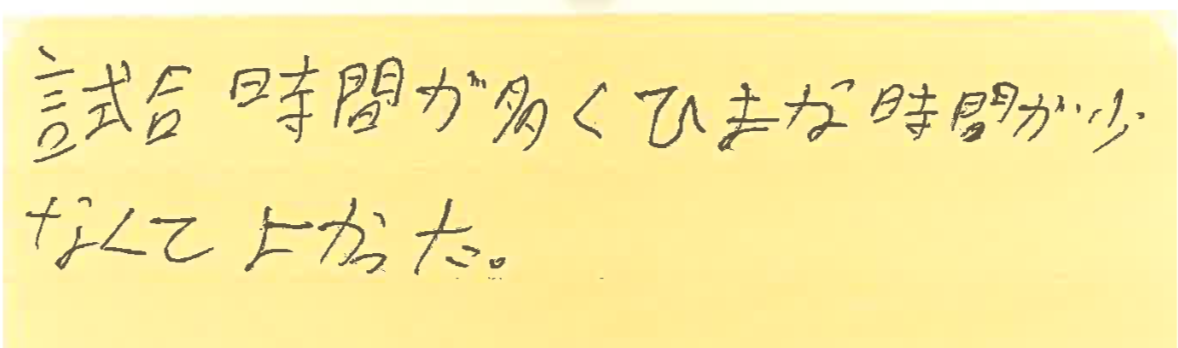 試合時間が多くひまな時間が少
なくてよかった。